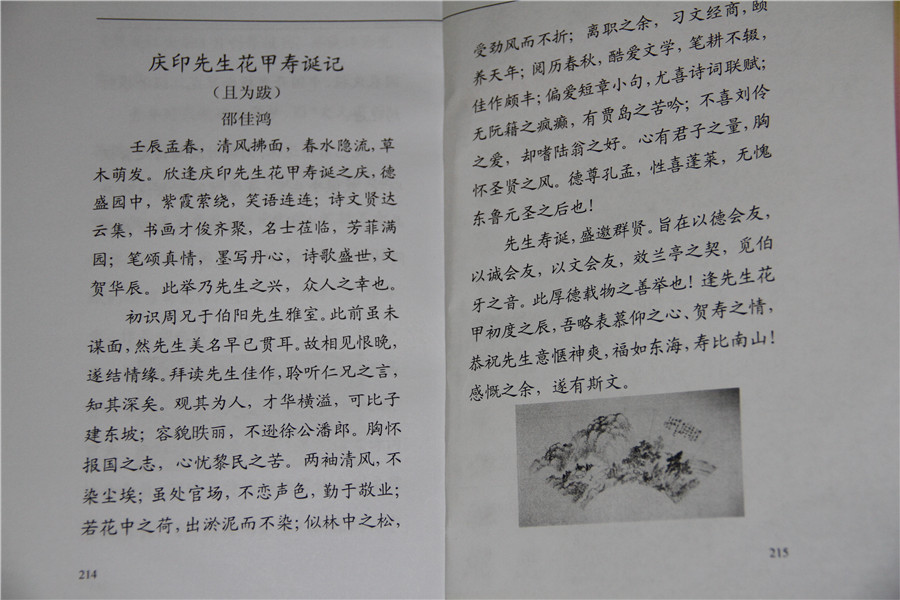 庆印先生花甲寿诞记
（且为跋）
邵佳鸿
壬辰孟春，清风拂面，春水隐流，草
木萌发。欣逢庆印先生花甲寿诞之庆，德
盛园中，紫霞萦绕，笑语连连；诗文贤达
云集，书画才俊齐聚，名士莅临，芳菲满
园；笔颂真情，墨写丹心，诗歌盛世，文
贺华辰。此举乃先生之兴，众人之幸也。
初识周兄于伯阳先生雅室。此前虽未
谋面，然先生美名早已贯耳。故相见恨晚，
遂结情缘。拜读先生佳作，聆听仁兄之言，
知其深矣。观其为人，才华横溢，可比子
建东坡；容貌昳丽，不逊徐公潘郎。胸怀
报国之志，心忧黎民之苦。两袖清风，不
染尘埃；虽处官场，不恋声色，勤于敬业；
若花中之荷，出淤泥而不染；似林中之松，
214
受劲风而不折；离职之余，习文经商，颐
养天年；阅历春秋，酷爱文学，笔耕不辍，
佳作颇丰；偏爱短章小句，尤喜诗词联赋；
无阮籍之疯癫，有贾岛之苦吟；不喜刘伶
之爱，却嗜陆翁之好。心有君子之量，胸
怀圣贤之风。德尊孔孟，性喜蓬莱，无愧
东鲁元圣之后也！
先生寿诞，盛邀群贤。旨在以德会友，
以诚会友，以文会友，效兰亭之契，觅伯
牙之音。此厚德载物之善举也！逢先生花
甲初度之辰，吾略表慕仰之心、贺寿之情，
恭祝先生意惬神爽，福如东海，寿比南山！
感慨之余，遂有斯文。
215